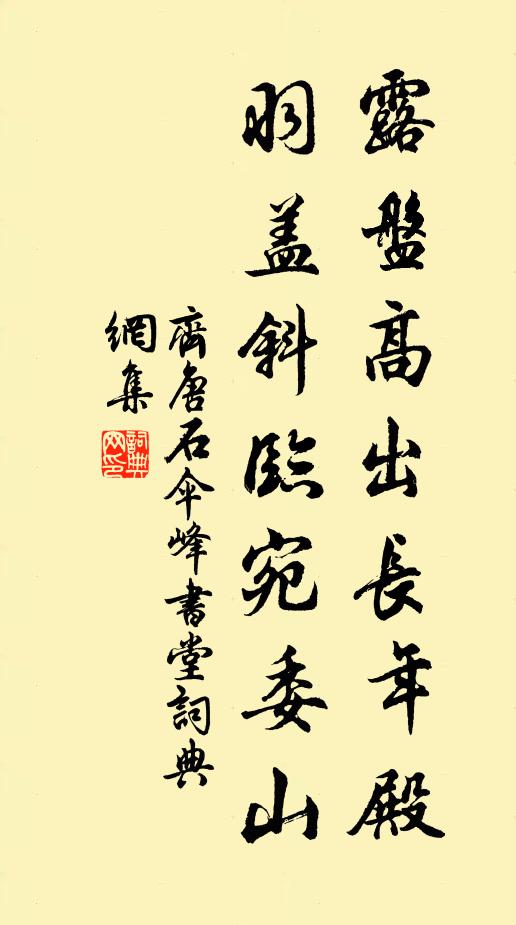 露盤高出長年殿
羽盖斜臨宛委山
齊唐石伞峰書堂詞典
網集
詞典
网印